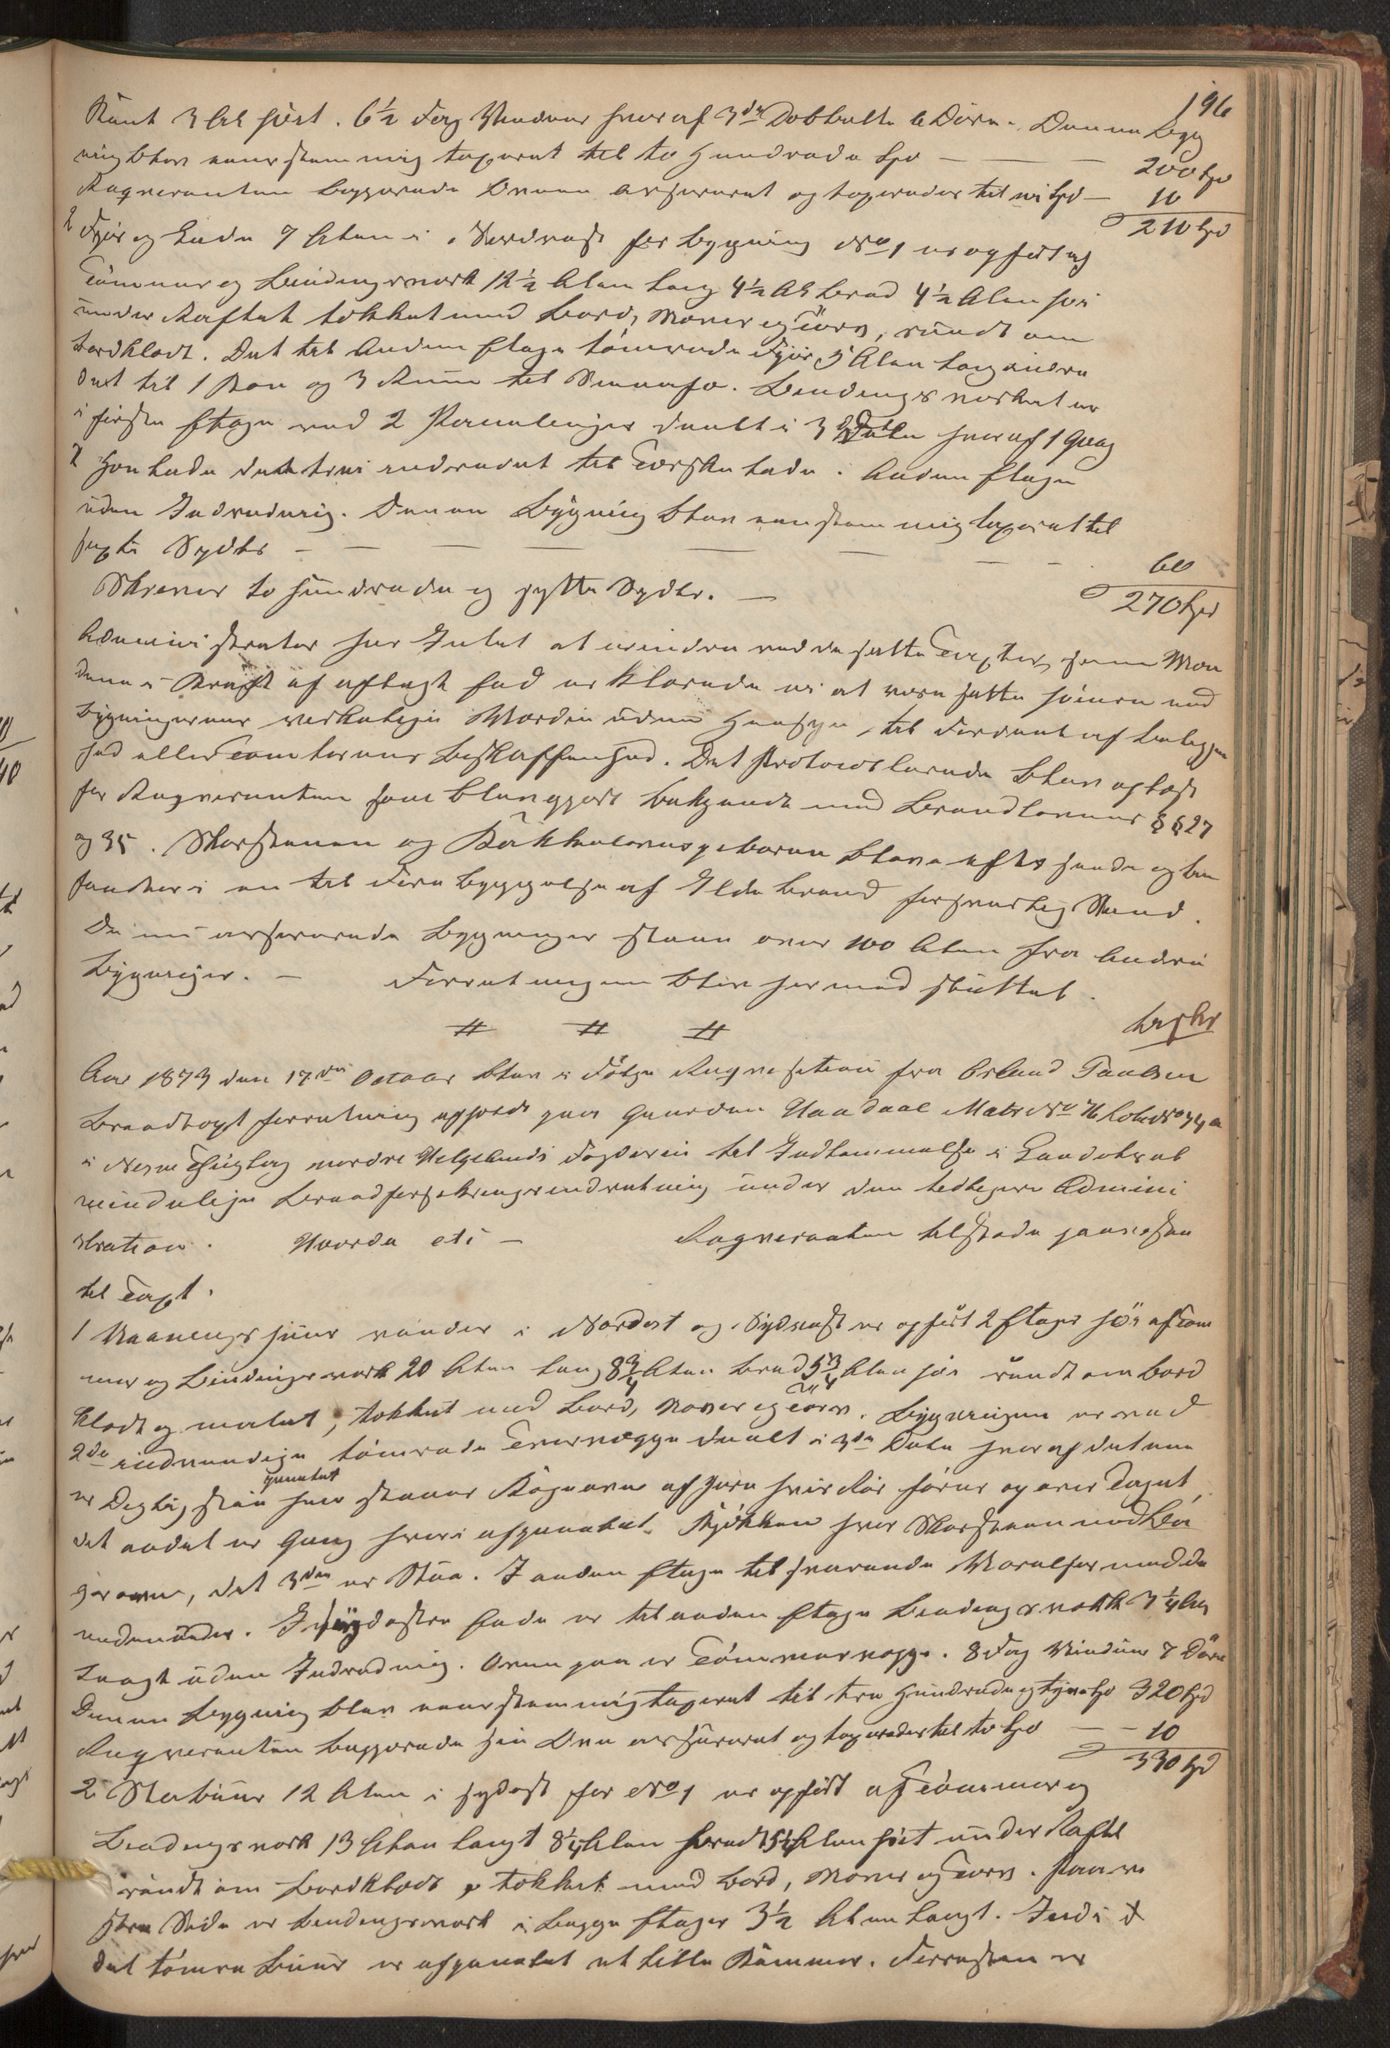 196
Rünt 3 Al høit. 6½ Fag Vinduer hvoraf 3de Dobbelte 6 Døre. Denne Byg
ning blev eenstemmig taxeret til to Hundrede Spd — — — 200 Spd
Reqvirenten begjærede Ovnen assureret og taxeredes til ti Spd — 10
210 Spd
2 Fjøs og Lade 7 Alen i Nordvest for bygning No 1 er opført af
Tømmer og Bindingsverk 12½ Alen lang 4½ Al bred 4½ Alen høi
under Raftet tækket med Bord, Næver og Torv, rundt om
bordklædt. Det til Anden Etage tømrede Fjøs 5 Alen lang indre
det til 1 Rou og 3 Rum til Smaafæ. Bindingsverket er
i første Etage ved 2 Panelinger deelt i 3 Dele hvoraf 1 Gang
1 Høelade det tredie indredet til Torskelade. Anden Etage
uden Indredning. Denne Bygning blev eenstemmig taxeret til
sexti Spdlr — — — — — — 60
Skriver to Hundrede og sytti Spdlr. — 270 Spd
Administrator har Intet at erindre ved de satte Taxter, som Mæn
dene i Kraft af aflagt Eed erklærede ei at være satte høiere end
Bygningernes virkelige Værdie uden Hensyn til Fordeel af Beliggen
hed eller Tomternes Beskaffenhed. Det Protocollerede blev oplæst
for Reqvirenten som blev gjort bekjendt med Brandlovens §§ 27
og 35. Skorstenen og Kakkelovnsrørene blev efterseede og be
fandtes i en til Forebyggelse af Ildebrand forsvarlig Stand.
De nu assurerede Bygninger staar over 100 Alen fra Andre
Bygninger. — Forretningen blev hermed sluttet.
# # #
Aar 1873 den 17de October blev i Følge Reqvisition fra Erland Paulsen
Brandtaxtforretning afholdt paa Gaarden Haadaal Matr No 76 Løbe No 74a
i Nesne Thinglag nordre Helgelands Fogderi til Indlemmelse i Landets al
mindelige Brandforsikringsindretning under den tidligere Admini
stration. Hvorda eti — Reqvirenten tilstede paaviste
til Taxt.
1 Vaaningshuus vender i Nordost og Sydvest er opført 2 Etager høi af Tøm
mer og Bindingsverk 20 Alen lang 8¾ Alen bred 5¾ Alen høi rundt om bord
klædt og malet, tækket med Bord, Næver og Torv. Bygningen er ved
2de indvendige tømrede Tvervægge deelt i 3de Dele hvoraf det ene
er Daglig stue panelet hvor staaer Kogeovn af Jern hvis Rør fører op over Taget
det andet er Gang hvori afpanelet Kjøkken hvor Skorsteen med Ba
gerovn, det 3die er Stue. I anden Etage tilsvarende Værelser med de
nedenunder. I sydostre Ende er til anden Etage Bindingsverk 3¼ Alen
Langt uden Indredning. Ovenpaa er Tømmervægge. 8 Fag Vinduer 7 Døre
Denne Bygning blev eenstemmig taxeret til tre Hundrede og tyve Spd 320 Spd
Reqvirenten begjærede sin Ovn assureret og taxeredes til ti Spd — — 10
330 Spd
2 Stabuur 12 Alen i sydost for No 1 er opført af Tømmer og
Bindingsverk 13 Alen langt 8¼ Alen bredt 5¼ Alen høit under Raftet
rundt om bordklædt, tækket med bord, Næver og Torv. Paa ve
stre Side er Bindingsverk i begge Etager 3½ Alen langt. Indi
det tømre Buur er afpanelet et lille Kammer. Forresten er